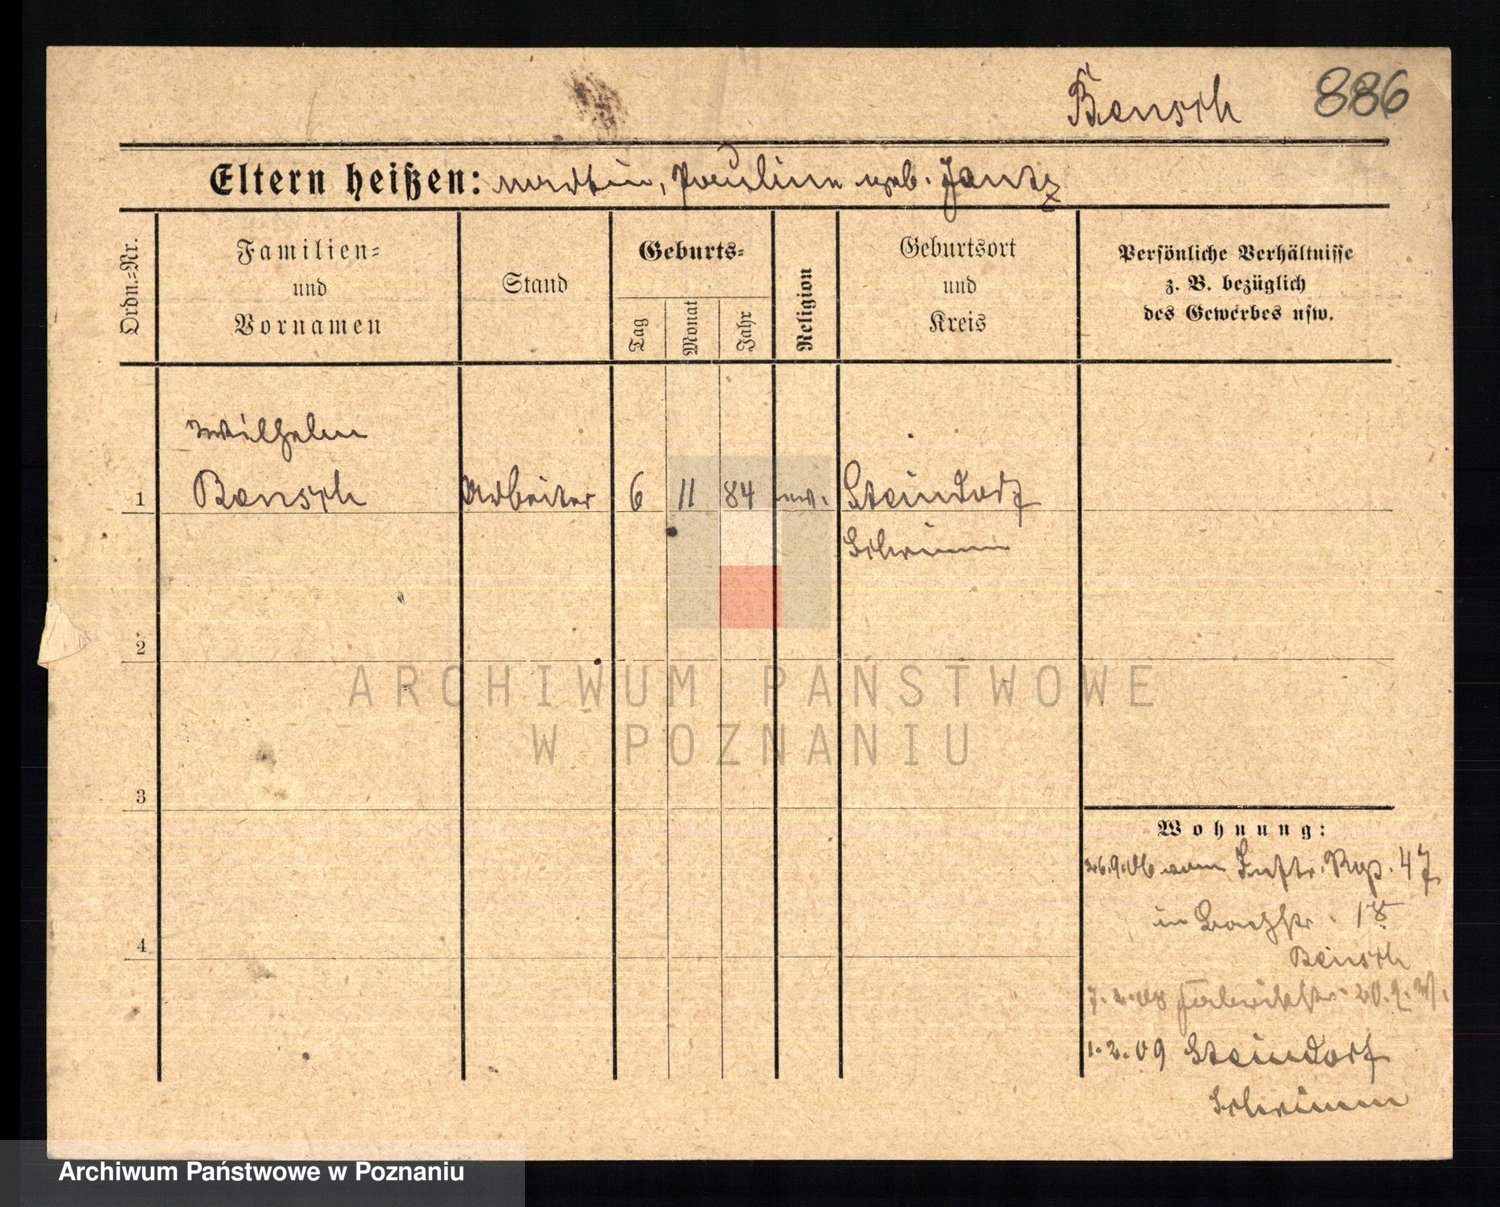 Bensch 886
Eltern heißen: Martin, Pauline geb. Jantz
Ordn.=Nr.
Familien=
und
Vornamen
Stand
Geburts=
Tag
Monat
Jahr
Religion
Geburtsort
und
Kreis
Persönliche Verhältnisse
z. B. bezüglich
des Gewerbes usw.
Wilhelm
1 Bensch Arbeiter 6 11 84 ev. Steindorf
Schrimm
2
3
4
Wohnung:
26.9.06 vom Inftr. Rgt. 47
in Bachstr. 18
Bensch
7.2.08 Fabrikstr. 20.
1.2.09 Steindorf
Schrimm
ARCHIWUM PAŃSTWOWE
W POZNANIU
Archiwum Państwowe w Poznaniu